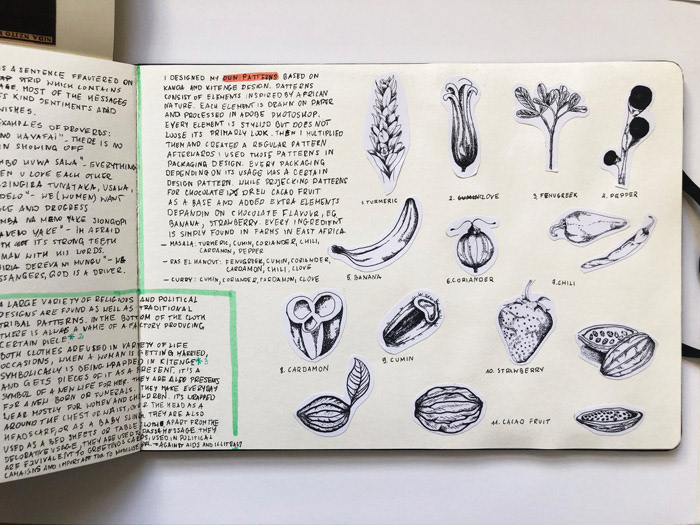 S A SENTENCE FEAUTERED ON
STRIP WHICH CONTAINS
AGE. MOST OF THE MESSAGES
S KIND SENTIMENTS AND
WISHES.
EXAMPLES OF PROVERBS:
NO HAVAFAI" - THERE IS NO
IN SHOWING OFF
MBO HUWA SAWA" - EVERYTHING
EN U LOVE EACH OTHER
DELO" - WE (WUMEN) WANT
CE AND PROGRESS
IM AFRAID
IT'S STRONG TEETH
MAN WITH HIS WORDS.
HIRIA DEREVA NI MUNGU" - WE
SSANGERS, GOD IS A DRIVER.
A LARGE VARIETY OF RELIGIOUS AND POLITICAL
DESIGNS ARE FOUND AS WELL AS TRADITIONAL
TRIBAL PATTERNS. IN THE BOTTOM OF THE CLOTH
THERE IS A NAME OF A FACTORY PRODUCING
CERTAIN PIELE
BOTH CLOTHES ARE USED IN VARIETY OF LIFE
OCCASIONS, WHEN A WOMAN IS GETTING MARRIED,
SYMBOLICALLY IS BEING WRAPPED IN KITENGE
AND GETS PIECES OF IT AS A PRESENT. IT'S A
SYMBOL OF A NEW LIFE FOR HER. THEY ARE ALSO PRESENTS
FOR A NEW BORN OR FUNERALS. THEY MAKE EVERYDAY
WEAR MOSTLY FOR WOMEN AND CHILDREN. IT'S WRAPPED
AROUND THE CHEST OR WAIST, OVER THE HEAD AS A
HEADSCARF, OR AS A BABY SLING. THEY ARE ALSO
USED AS A BED SHEETS OR TABLE CLOTHS, APART FROM THE
DECORATIVE USAGE, THEY ARE USED MESSAGE. THEY
ARE EQUIVALENT TO GREETINGS CARDS, USED IN POLITICAL
CAMPAINS AND IMPORTANT AGAINST AIDS AND ILLITERACY
I DESIGNED MY OWN PATTERNS BASED ON
KANGA AND KITENGE DESIGN. PATTERNS
CONSIST OF ELEMENTS INSPIRED BY AFRICAN
NATURE. EACH ELEMENT IS DRAWN ON PAPER
AND PROCESSED IN ADOBE PHOTOSHOP.
EVERY ELEMENT IS STYLISED BUT DOES NOT
LOOSE IT'S PRIMARLY LOOK. THEN I MULTIPLIED
THEM AND CREATED A REGULAR PATTERN
AFTERWARDS I USED THOSE PATTERNS IN
PACKAGING DESIGN. EVERY PACKAGING
DEPENDING ON ITS USAGE HAS A CERTAIN
DESIGN PATTERN. WHILE PROJECKING PATTERNS
FOR CHOCOLATE I DREW CACAO FRUIT
AS A BASE AND ADDED EXTRA ELEMENTS
DEPANDIN ON CHOCOLATE FLAVOUR, EG
BANANA, STRAWBERRY. EVERY INGREDIENT
IS SIMPLY FOUND IN FARMS IN EAST AFRICA.
- MASALA: TURMERIC, CUMIN, CORIANDER, CHILI,
CARDAMON, PEPPER
- RAS EL HANOUT: FENUGREEK, CUMIN, CORIANDER,
CARDAMON, CHILI, CLOVE
- CURRY: CUMIN, CORIANDER, CARDAMON, CLOVE
1. TURMERIC
2. CLOVE
3. FENUGREEK
4. PEPPER
5. BANANA
6. CORIANDER
7. CHILI
8. CARDAMON
9. CUMIN
10. STRAWBERRY
11. CACAO FRUIT